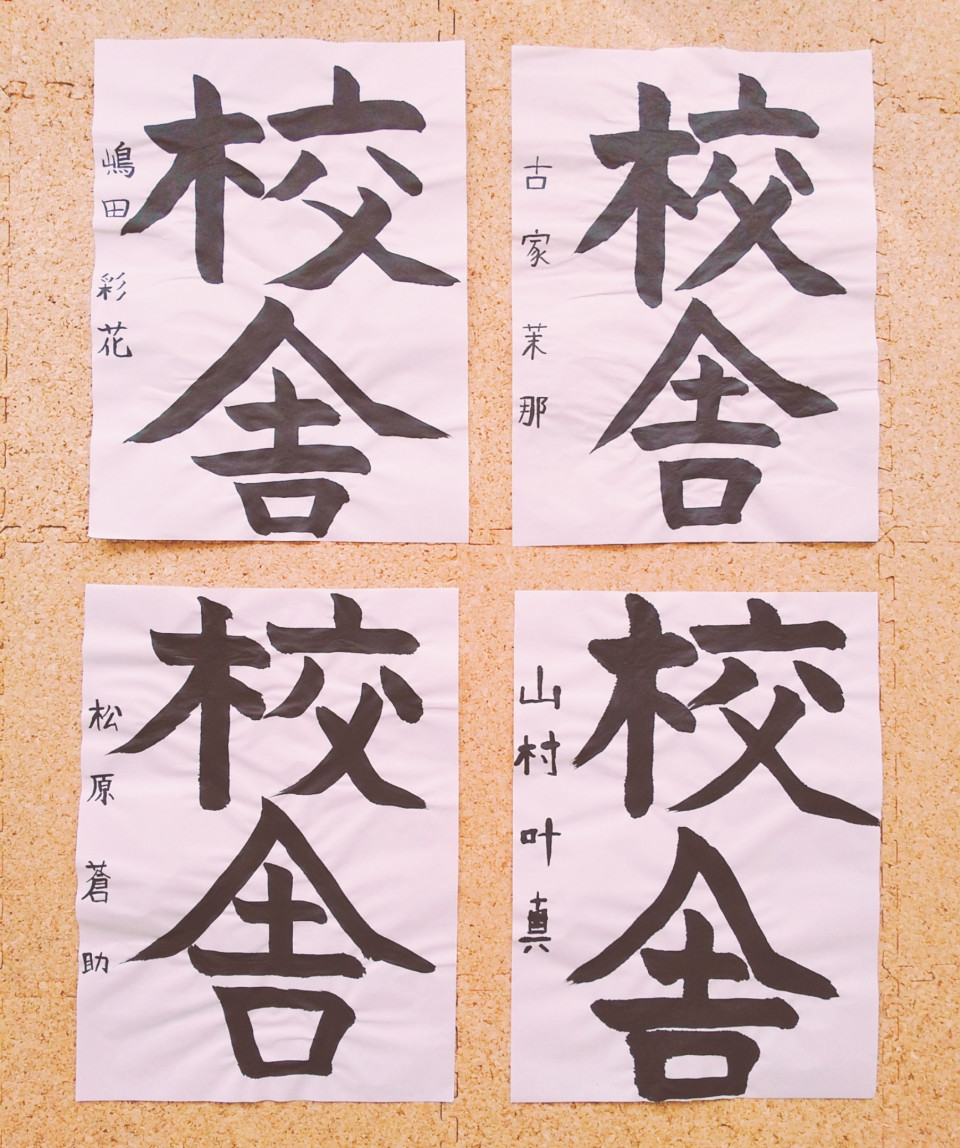 校舎
嶋田彩花
校舎
古家茉那
校舎
松原蒼助
校舎
山村叶真